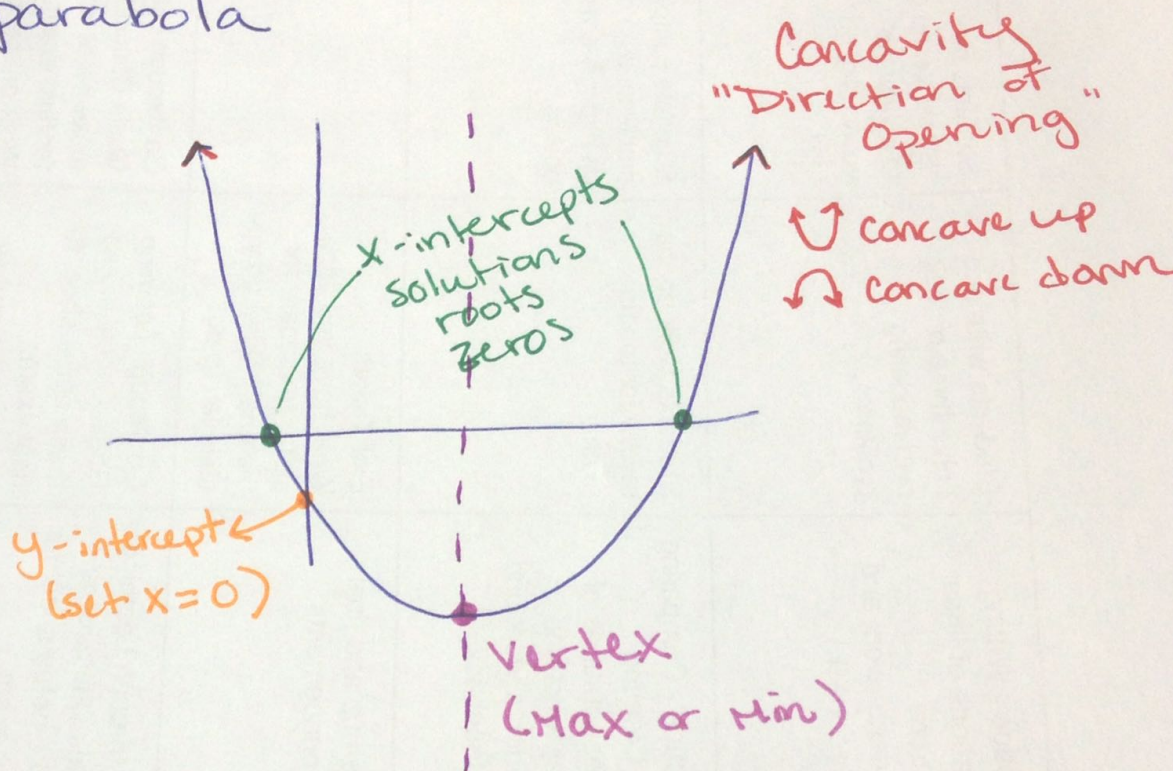 parabola
Concavity
"Direction of
Opening"
concave up
concave down
x-intercepts
solutions
roots
zeros
y-intercept
(set x=0)
vertex
(Max or Min)